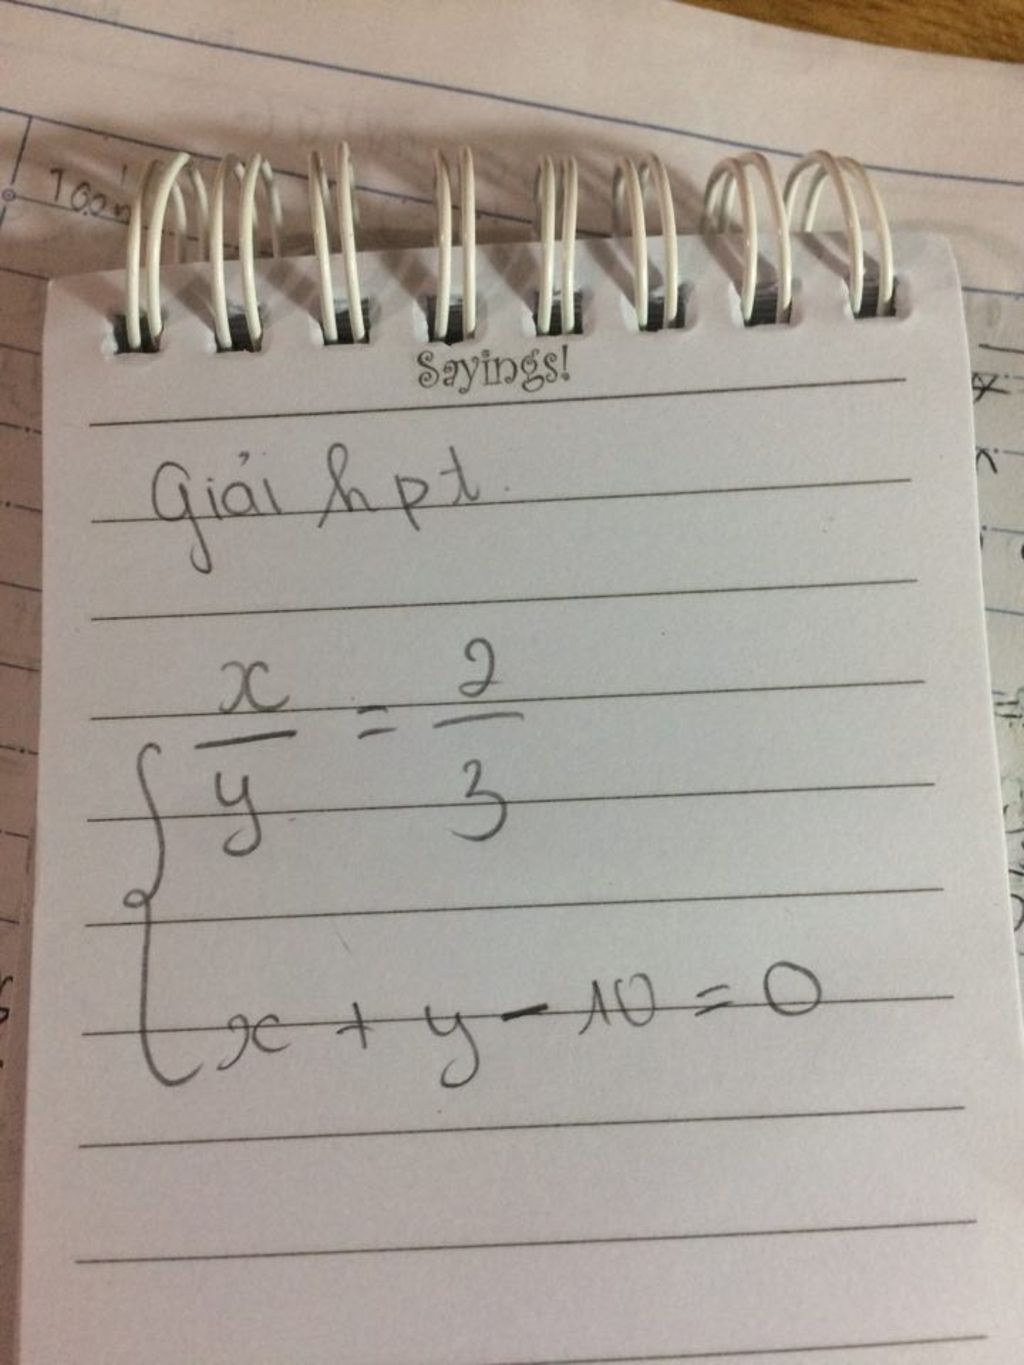 Toán
Sayings!
Giải hpt
x/y = 2/3
x + y - 10 = 0